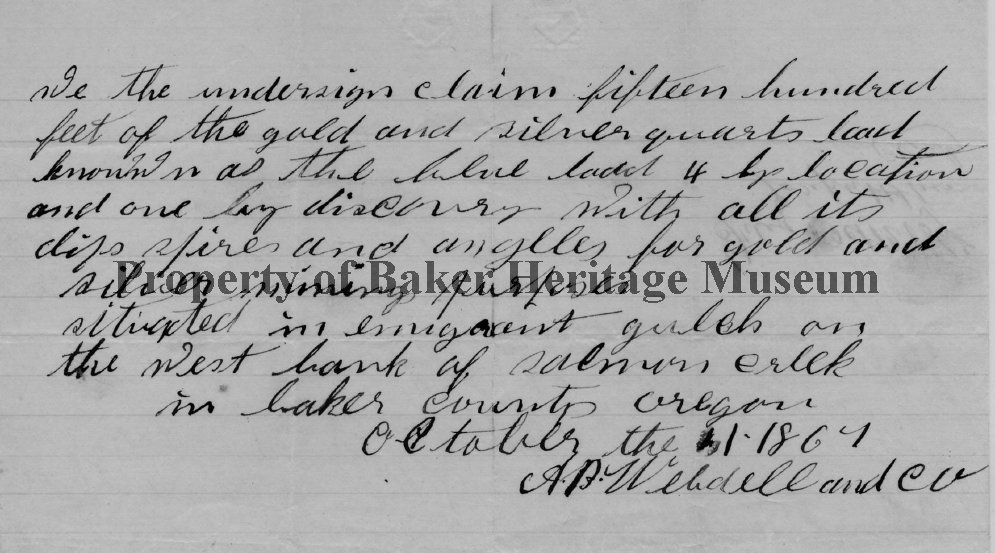 We the undersign claim fifteen hundred
feet of the gold and silver quarts load
known as the blue ladd 4 by location
and one by discovery with all its
dips spires and anglles for gold and
silver mining purposes
Property of Baker Heritage Museum
situated in emigrant gulch on
the west bank of salmon creek
in baker county oregon
October the 1 1867
A.B. Webdell and CO